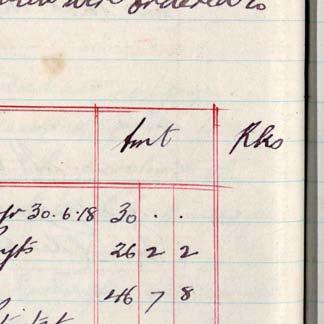 were ordered to
Amt Rks
yr 30.6.18 30 . .
26 2 2
46 7 8